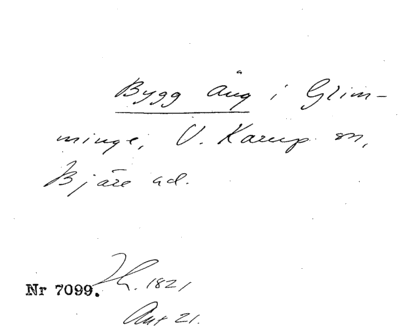 Bygg äng i Glim-
minge, V. Karup sn,
Bjäre hd.
Nr 7099. Lh. 1821
Ant 21.